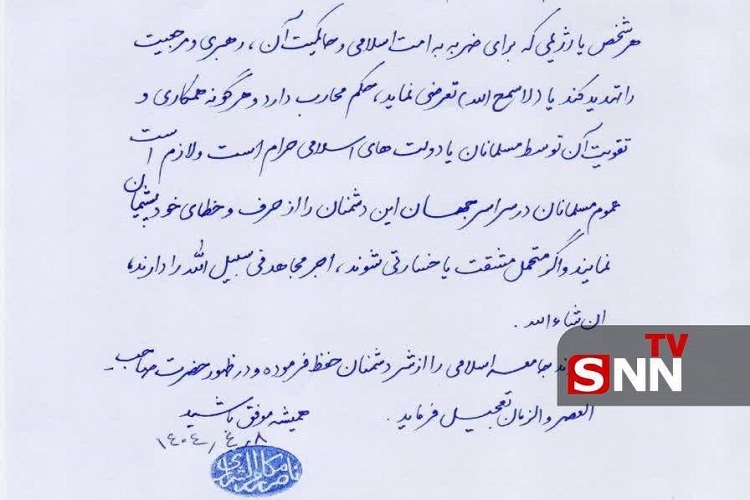 هر شخص یا رژیمی که برای ضربه به امت اسلامی و حاکمیت آن، رهبری و مرجعیت
را تهدید کند یا (لاسمح الله) تعرضی نماید، حکم محارب دارد و هرگونه همکاری و
تقویت آن توسط مسلمانان یا دولت های اسلامی حرام است و لازم است
عموم مسلمانان در سراسر جهان این دشمنان را از حرف و خطای خود پشیمان
نمایند و اگر متحمل مشقت یا خسارتی شوند، اجر مجاهد فی سبیل الله را دارند،
ان شاء الله.
جامعه اسلامی را از شر دشمنان حفظ فرموده و در ظهور حضرت صاحب
العصر و الزمان تعجیل فرماید.
همیشه موفق باشید
۱۴۰۴/۴/۸
ناصر مکارم الشیرازی
SNN TV